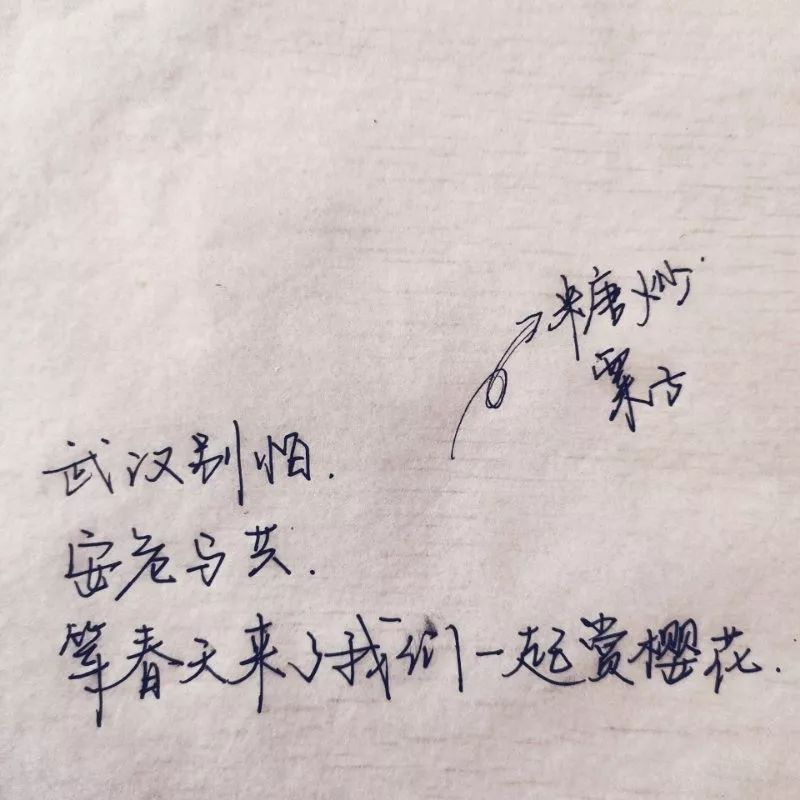 糖炒
栗方
武汉别怕.
安危与共.
等春天来了我们一起赏樱花.